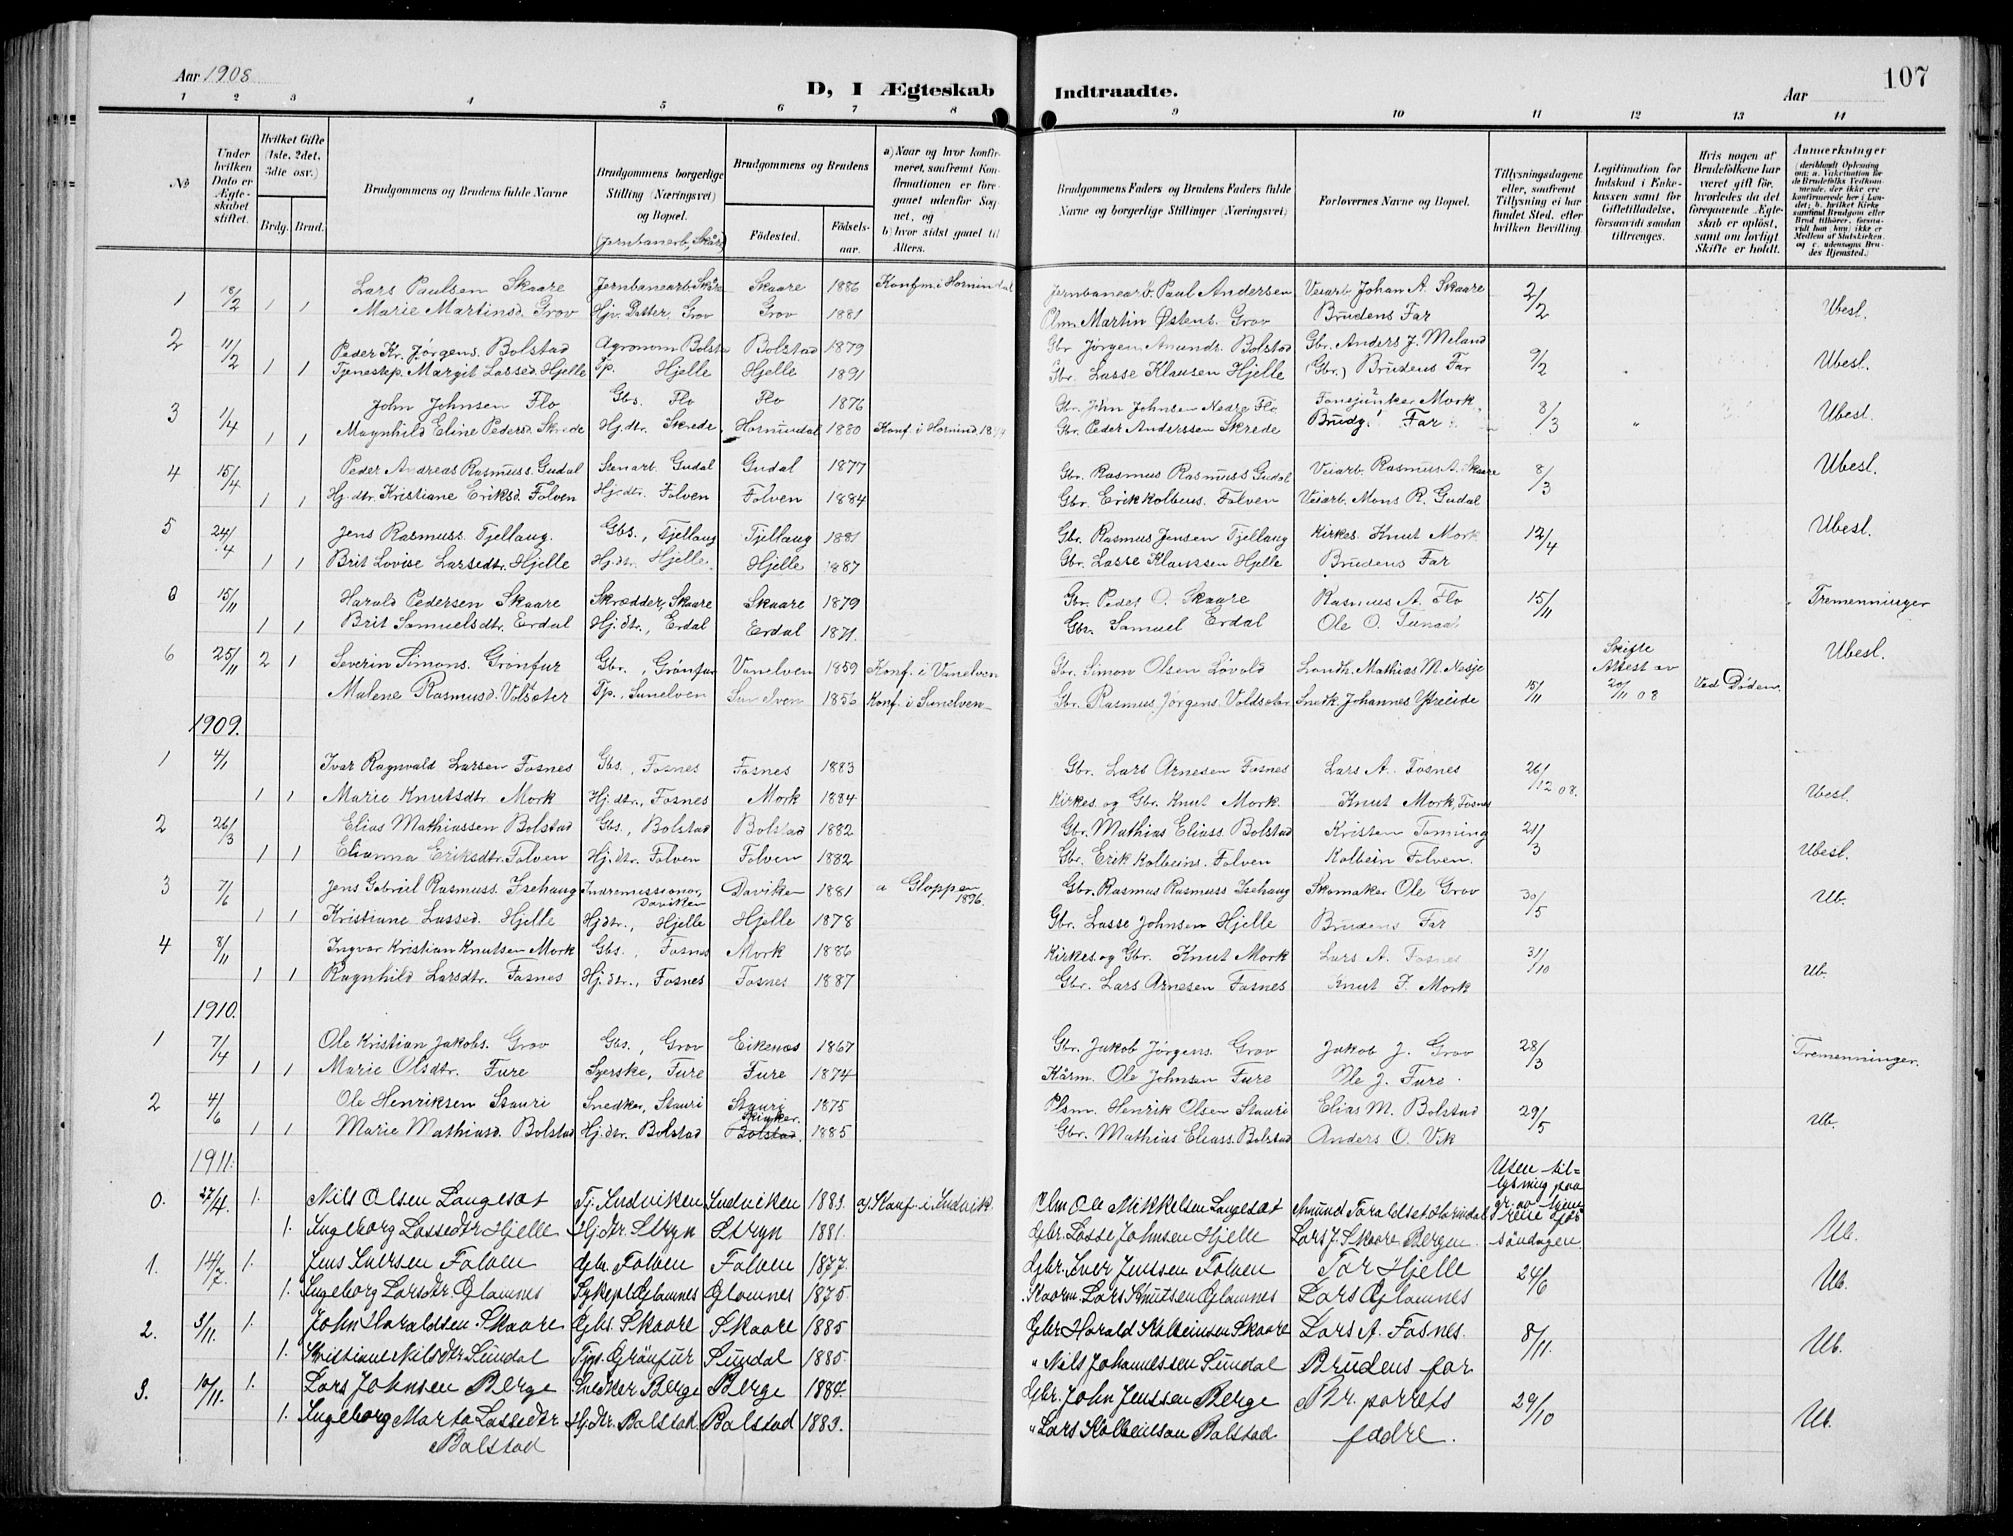 Aar 1908
D, I Ægteskab Indtraadte.
Aar
107
1 2 3 4 5 6 7 8 9 10 11 12 13 14
No
Under hvilken Dato er Ægteskabet stiftet.
Hvilket Gifte (1ste, 2det, 3die osv.)
Brdg. Brud.
Brudgommens og Brudens fulde Navne
Brudgommens borgerlige Stilling (Næringsvei) og Bopæl.
Brudgommens og Brudens
Fødested.
Fødselsaar.
a) Naar og hvor konfirmeret, saafremt Konfirmationen er foregaaet udenfor Sognet, og
b) hvor sidst gaaet til Alters.
Brudgommens Faders og Brudens Faders fulde Navne og borgerlige Stillinger (Næringsvei)
Forlovernes Navne og Bopæl.
Tillysningsdagene eller, saafremt Tillysning ei har fundet Sted, efter hvilken Bevilling.
Legitimation for Indskud i Enkekassen samt for Giftetilladelse, forsaavidt saadan tiltrænges.
Hvis nogen af Brudefolkene har været gift før, hvorledes da det foregaaende Ægteskab er opløst, samt om lovligt Skifte er holdt.
Anmærkninger
1 18/2 1 1 Lars Paulsen Skaare Jernbanearb. Skåre Skaare 1886 Konf. i Hornindal Jernbanearb. Paul Andersen Veiarb. Johan A. Skaare 2/2
Marie Martinsd. Grov Hjv. Datter, Grov Grov 1881 Plm. Martin Østens. Grov Brudens Far Ubesl.
2 11/2 1 1 Peder Kr. Jørgens. Bolstad Agronom Bolsta Bolstad 1879 Gbr. Jørgen Amundr. Bolstad Gbr. Anders J. Meland 9/2
Tjenestep. Margit Lassed. Hjelle Tp. Hjelle Hjelle 1891 Gbr. Lasse Klausen Hjelle (Gbr.) Brudens Far Ubesl.
3 1/4 1 1 John Johnsen Flo Gbs. Flo Flo 1876 Gbr. John Johnsen Nedre Flo Mork 8/3
Magnhild Eline Pedersd. Skrede Hj.dtr. Skrede, Hornindal 1880 Konf. i Hornind. Gbr. Peder Anderssen Skrede Brudg. Far Ubesl.
4 15/4 1 1 Peder Andreas Rasmuss. Gudal Stenarb. Gudal Gudal 1877 Gbr. Rasmus Rasmuss Gudal Veiarb. Rasmus A. Skaare 8/3
Hj.dtr. Kristiane Eriksd. Folven Hj.dtr. Folven Folven 1884 Gbr. Erik Kolbeins. Folven Veiarb. Mons R. Gudal Ubesl.
5 24/4 1 1 Jens Rasmuss. Tjellaug. Gbs., Tjellaug Tjellaug 1881 Gbr. Rasmus Jensen Tjellaug Kirkes. Knut Mork 12/4
Brit Lovise Larsedtr. Hjelle Hj.dtr. Hjelle. Hjelle 1887 Gbr. Lasse Klaussen Hjelle Brudens Far Ubesl.
0 15/11 1 1 Harald Pedersen Skaare Skrædder, Skaare Skaare 1879 Gbr. Peder O. Skaare Rasmus A. Flo 15/11
Brit Samuelsdtr. Erdal Hj.dtr., Erdal Erdal 1871. Gbr. Samuel Erdal Ole O. Tunaal Tremenninger
6 25/11 2 1 Severin Simons. Grönfur Gbr., Grönfur Vanelven 1859 Konf. i Vanelven Gbr. Simon Olsen Løvold Landh. Mathias M. Nesje Skifte Attest av 20/11 08 Ved Døden. Ubesl.
Malene Rasmusd. Voldsæter Tp., Sunelven Sunelven 1856 Konf. i Sunelven Gbr. Rasmus Jørgens. Voldsæter Snedk. Johannes Ytreeide 15/11
1909.
1 4/1 1 1 Ivar Ragnvald Larsen Fosnes Gbs., Fosnes Fosnes 1883 Gbr. Lars Arnesen Fosnes Lars A. Fosnes 26/12 08.
Marie Knutsdtr. Mork Hj.dtr., Fosnes Mork 1884 Kirkes. og Gbr. Knut Mork. Knut Mork, Fosnes Ubesl.
2 26/3 1 1 Elias Mathiassen Bolstad Gbs., Bolstad Bolstad 1882 Gbr. Mathias Eliass. Bolstad Kristen Tomning 21/3
Elianna Eriksdtr. Folven Hj.dtr. Folven Folven 1882 Gbr. Erik Kolbeins. Folven Kolbein Folven. Ubesl.
3 7/6 1 1 Jens Gabriel Rasmuss. Isehaug Indremissionær, Daviken Daviken 1881 a Gloppen 1896. Gbr. Rasmus Rasmuss Isehaug Skomaker Ole Grov 30/5
Kristiane Lassed. Hjelle Hj.dtr., Hjelle Hjelle 1878 Gbr. Lasse Johnsen Hjelle Brudens Far Ub.
4 8/11 1 1 Ingvar Kristian Knutsen Mork Gbs., Fosnes Mork 1886 Kirkes. og Gbr. Knut Mork Lars A. Fosnes 31/10
Ragnhild Larsdtr. Fosnes Hj.dtr., Fosnes Fosnes 1887 Gbr. Lars Arnesen Fosnes Knut J. Mork Ub.
1910.
1 7/4 1 1 Ole Kristian Jakobs. Grov Gbs., Grov Eikenæs 1867 Gbr. Jakob Jørgens. Grov Jakob J. Grov 28/3 Tremenninger.
Marie Olsdtr. Fure Syerske, Fure Fure 1874 Kårm. Ole Johnsen Fure Ole J. Fure.
2 4/6 1 1 Ole Henriksen Stauri Snedker, Stauri Stauri 1875 Plsm. Henrik Olsen Stauri Elias M. Bolstad 29/5
Marie Mathiasd. Bolstad Hj.dtr. Bolstad Bolstad, 1885 Gbr. Mathias Eliass. Bolstad Anders O. Vik Ub.
1911.
0. 27/4. 1. Nils Olsen Langesæt Tj. Indviken Indviken 1883. a) Konf. i Indvik. Plm Ole Mikkelsen Langesæt Amund Taraldset, Hornindal Uten tillysning paa gr. av hjemreise før söndagen.
1. Ingeborg Lassedtr Hjelle Hj.dtr Stryn Stryn 1881. Gbr. Lasse Johnsen Hjelle Lars J. Skaare Bergen. Ub.
1. 14/7. 1. Jens Iversen Folven Gbr. Folven Folven 1877. Gbr. Iver Jenssen Folven Tor Hjelle 24/6
1. Ingeborg Larsdtr. Glomnes Sykepl. Glomnes Glomnes 1875 Kaarm. Lars Knutsen Glomnes Lars Glomnes Ub.
2. 3/11. 1. John Haraldsen Skaare Gbs. Skaare Skaare 1885 Gbr Harald Kolbeinsen Skaare Lars A. Fosnes. 8/11.
1. Kristiane Nilsdtr Sundal Tjgs. Grönfur Sundal 1885. " Nils Johannessen Sundal Brudens far Ub.
3. 10/11. 1. Lars Johnsen Berge Snedker Berge Berge 1884. Gbr. John Jenssen Berge Br. parrets 29/10
1. Ingeborg Marta Lassedtr Bolstad Hj.dtr. Bolstad Bolstad 1883. " Lars Kolbeinson Bolstad fædre. Ub.